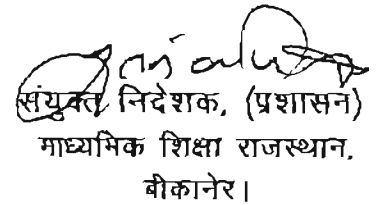 संयुक्त निदेशक, (प्रशासन)
माध्यमिक शिक्षा राजस्थान,
बीकानेर।